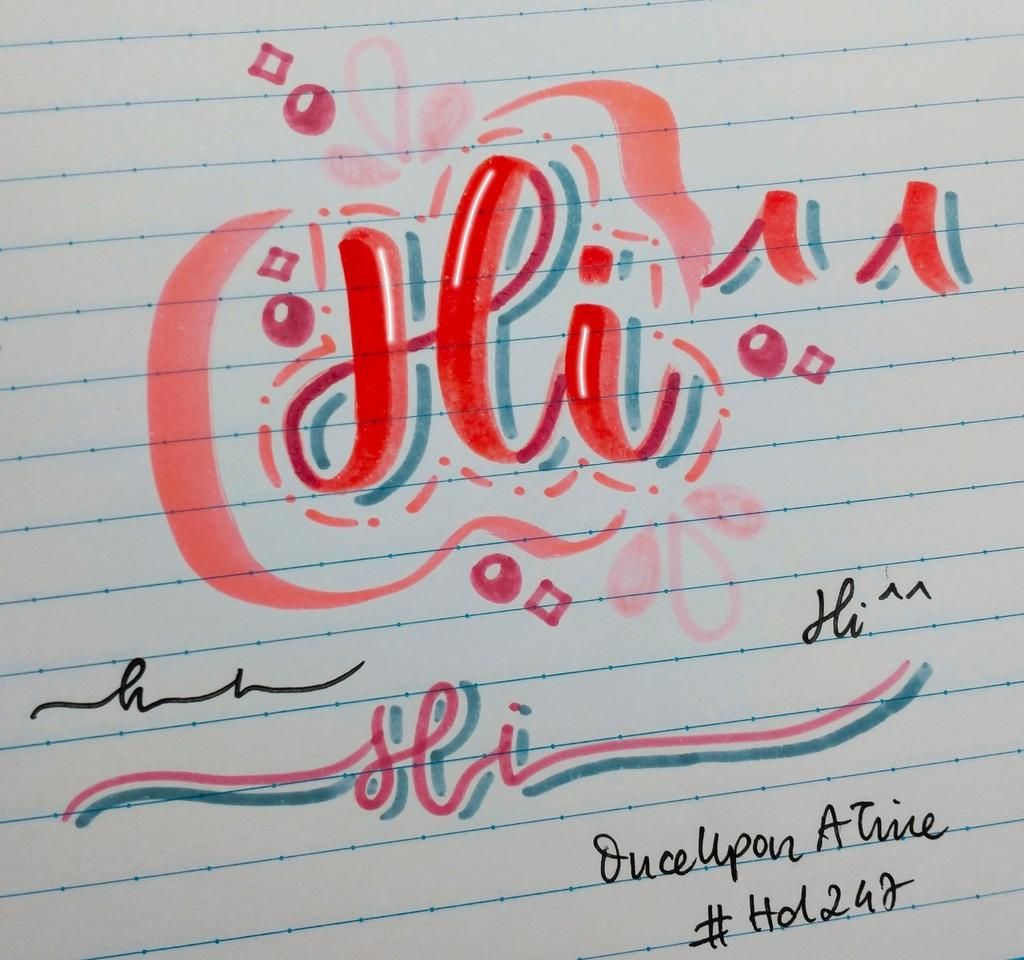 Hi ^^
Hi ^^
Hi
OnceUpon A Time
# Hd247